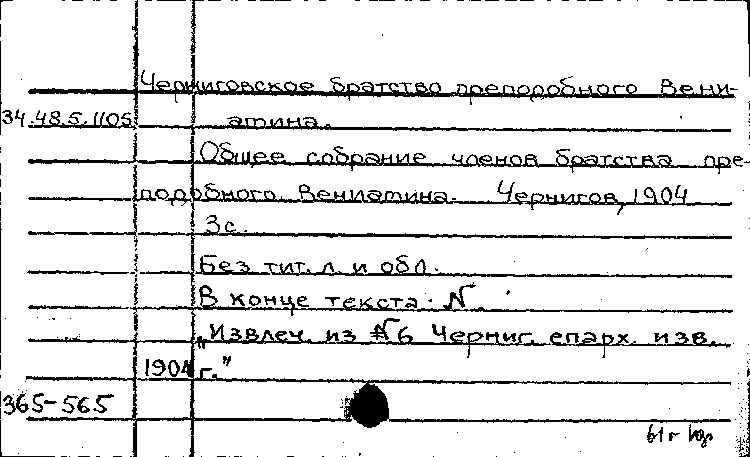 Черниговское братство преподобного Вени-
34.48.5.1105 амина.
Общее собрание членов братства пре-
подобного Вениамина. Чернигов, 1904
3с.
Без тит. л. и обл.
В конце текста: N
„Извлеч. из №6 Черниг. епарх. изв.
1904 г."
365-565
61г